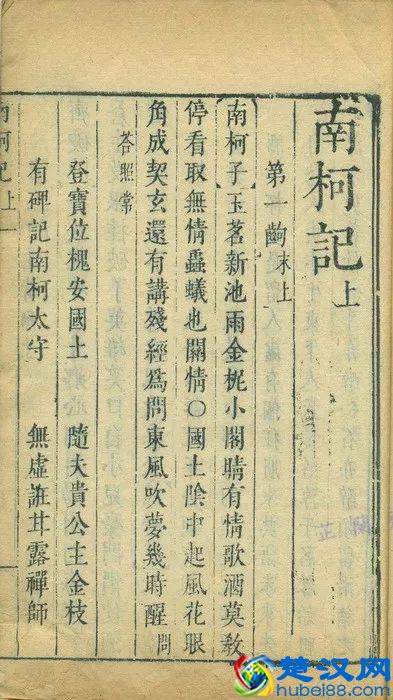 南柯記上
第一齣末上
【南柯子】玉茗新池雨金柅小閣晴有情歌酒莫教
停看取無情蟲蟻也關情○國土陰中起風花眼
角成契玄還有講殘經爲問東風吹夢幾時醒問
答照常
登寶位槐安國土　隨夫貴公主金枝
有碑記南柯太守　無虛誑甘露禪師
南柯記上
一
楚汉网
hubei88.com